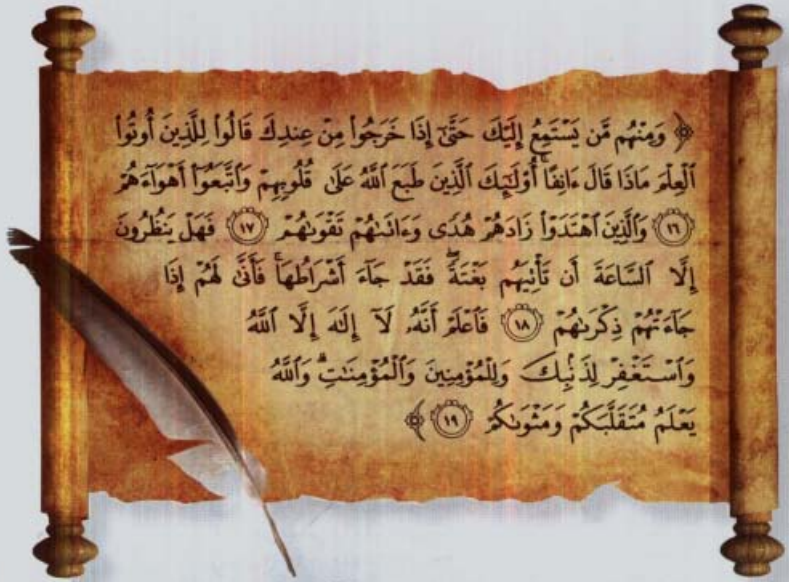 ﴿ وَمِنْهُم مَّن يَسْتَمِعُ إِلَيْكَ حَتَّىٰٓ إِذَا خَرَجُوا۟ مِنْ عِندِكَ قَالُوا۟ لِلَّذِينَ أُوتُوا۟
ٱلْعِلْمَ مَاذَا قَالَ ءَانِفًا ۚ أُو۟لَـٰٓئِكَ ٱلَّذِينَ طَبَعَ ٱللَّهُ عَلَىٰ قُلُوبِهِمْ وَٱتَّبَعُوٓا۟ أَهْوَآءَهُمْ
١٦ وَٱلَّذِينَ ٱهْتَدَوْا۟ زَادَهُمْ هُدًى وَءَاتَىٰهُمْ تَقْوَىٰهُمْ ١٧ فَهَلْ يَنظُرُونَ
إِلَّا ٱلسَّاعَةَ أَن تَأْتِيَهُم بَغْتَةً ۖ فَقَدْ جَآءَ أَشْرَاطُهَا ۚ فَأَنَّىٰ لَهُمْ إِذَا
جَآءَتْهُمْ ذِكْرَىٰهُمْ ١٨ فَٱعْلَمْ أَنَّهُۥ لَآ إِلَـٰهَ إِلَّا ٱللَّهُ
وَٱسْتَغْفِرْ لِذَنۢبِكَ وَلِلْمُؤْمِنِينَ وَٱلْمُؤْمِنَـٰتِ ۗ وَٱللَّهُ
يَعْلَمُ مُتَقَلَّبَكُمْ وَمَثْوَىٰكُمْ ١٩ ﴾